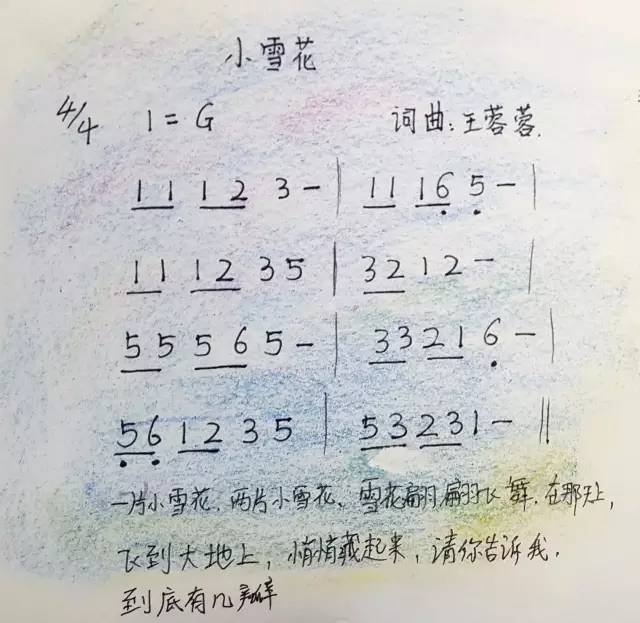 小雪花
4/4 1=G 词曲:王蓉蓉.
11 12 3-| 11 16 5-|
11 12 35 | 32 12-|
55 56 5-| 33 21 6-|
56 12 35 | 53 231-‖
一片小雪花,两片小雪花,雪花翩翩飞舞,在那天上,
飞到大地上,悄悄藏起来,请你告诉我,
到底有几瓣